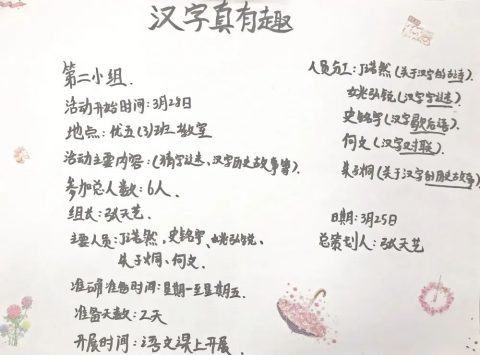 汉字真有趣
第二小组.
活动开始时间:3月28日
地点:优五(3)班教室
活动主要内容:(猜字谜、汉字历史故事等).
参加总人数:6人.
组长:张天艺.
主要人员:浩然、史铭宇、姚弘锐、
朱子炯、何文.
准确准备时间:星期一至星期五.
准备天数:2天
开展时间:语文课上开展.
人员分工:浩然(关于汉字的).
姚弘锐(汉字字谜).
史铭宇(汉字歇后语).
何文(汉字对联).
朱子炯(关于汉字的历史故事)
日期:3月25日
总策划人:张天艺